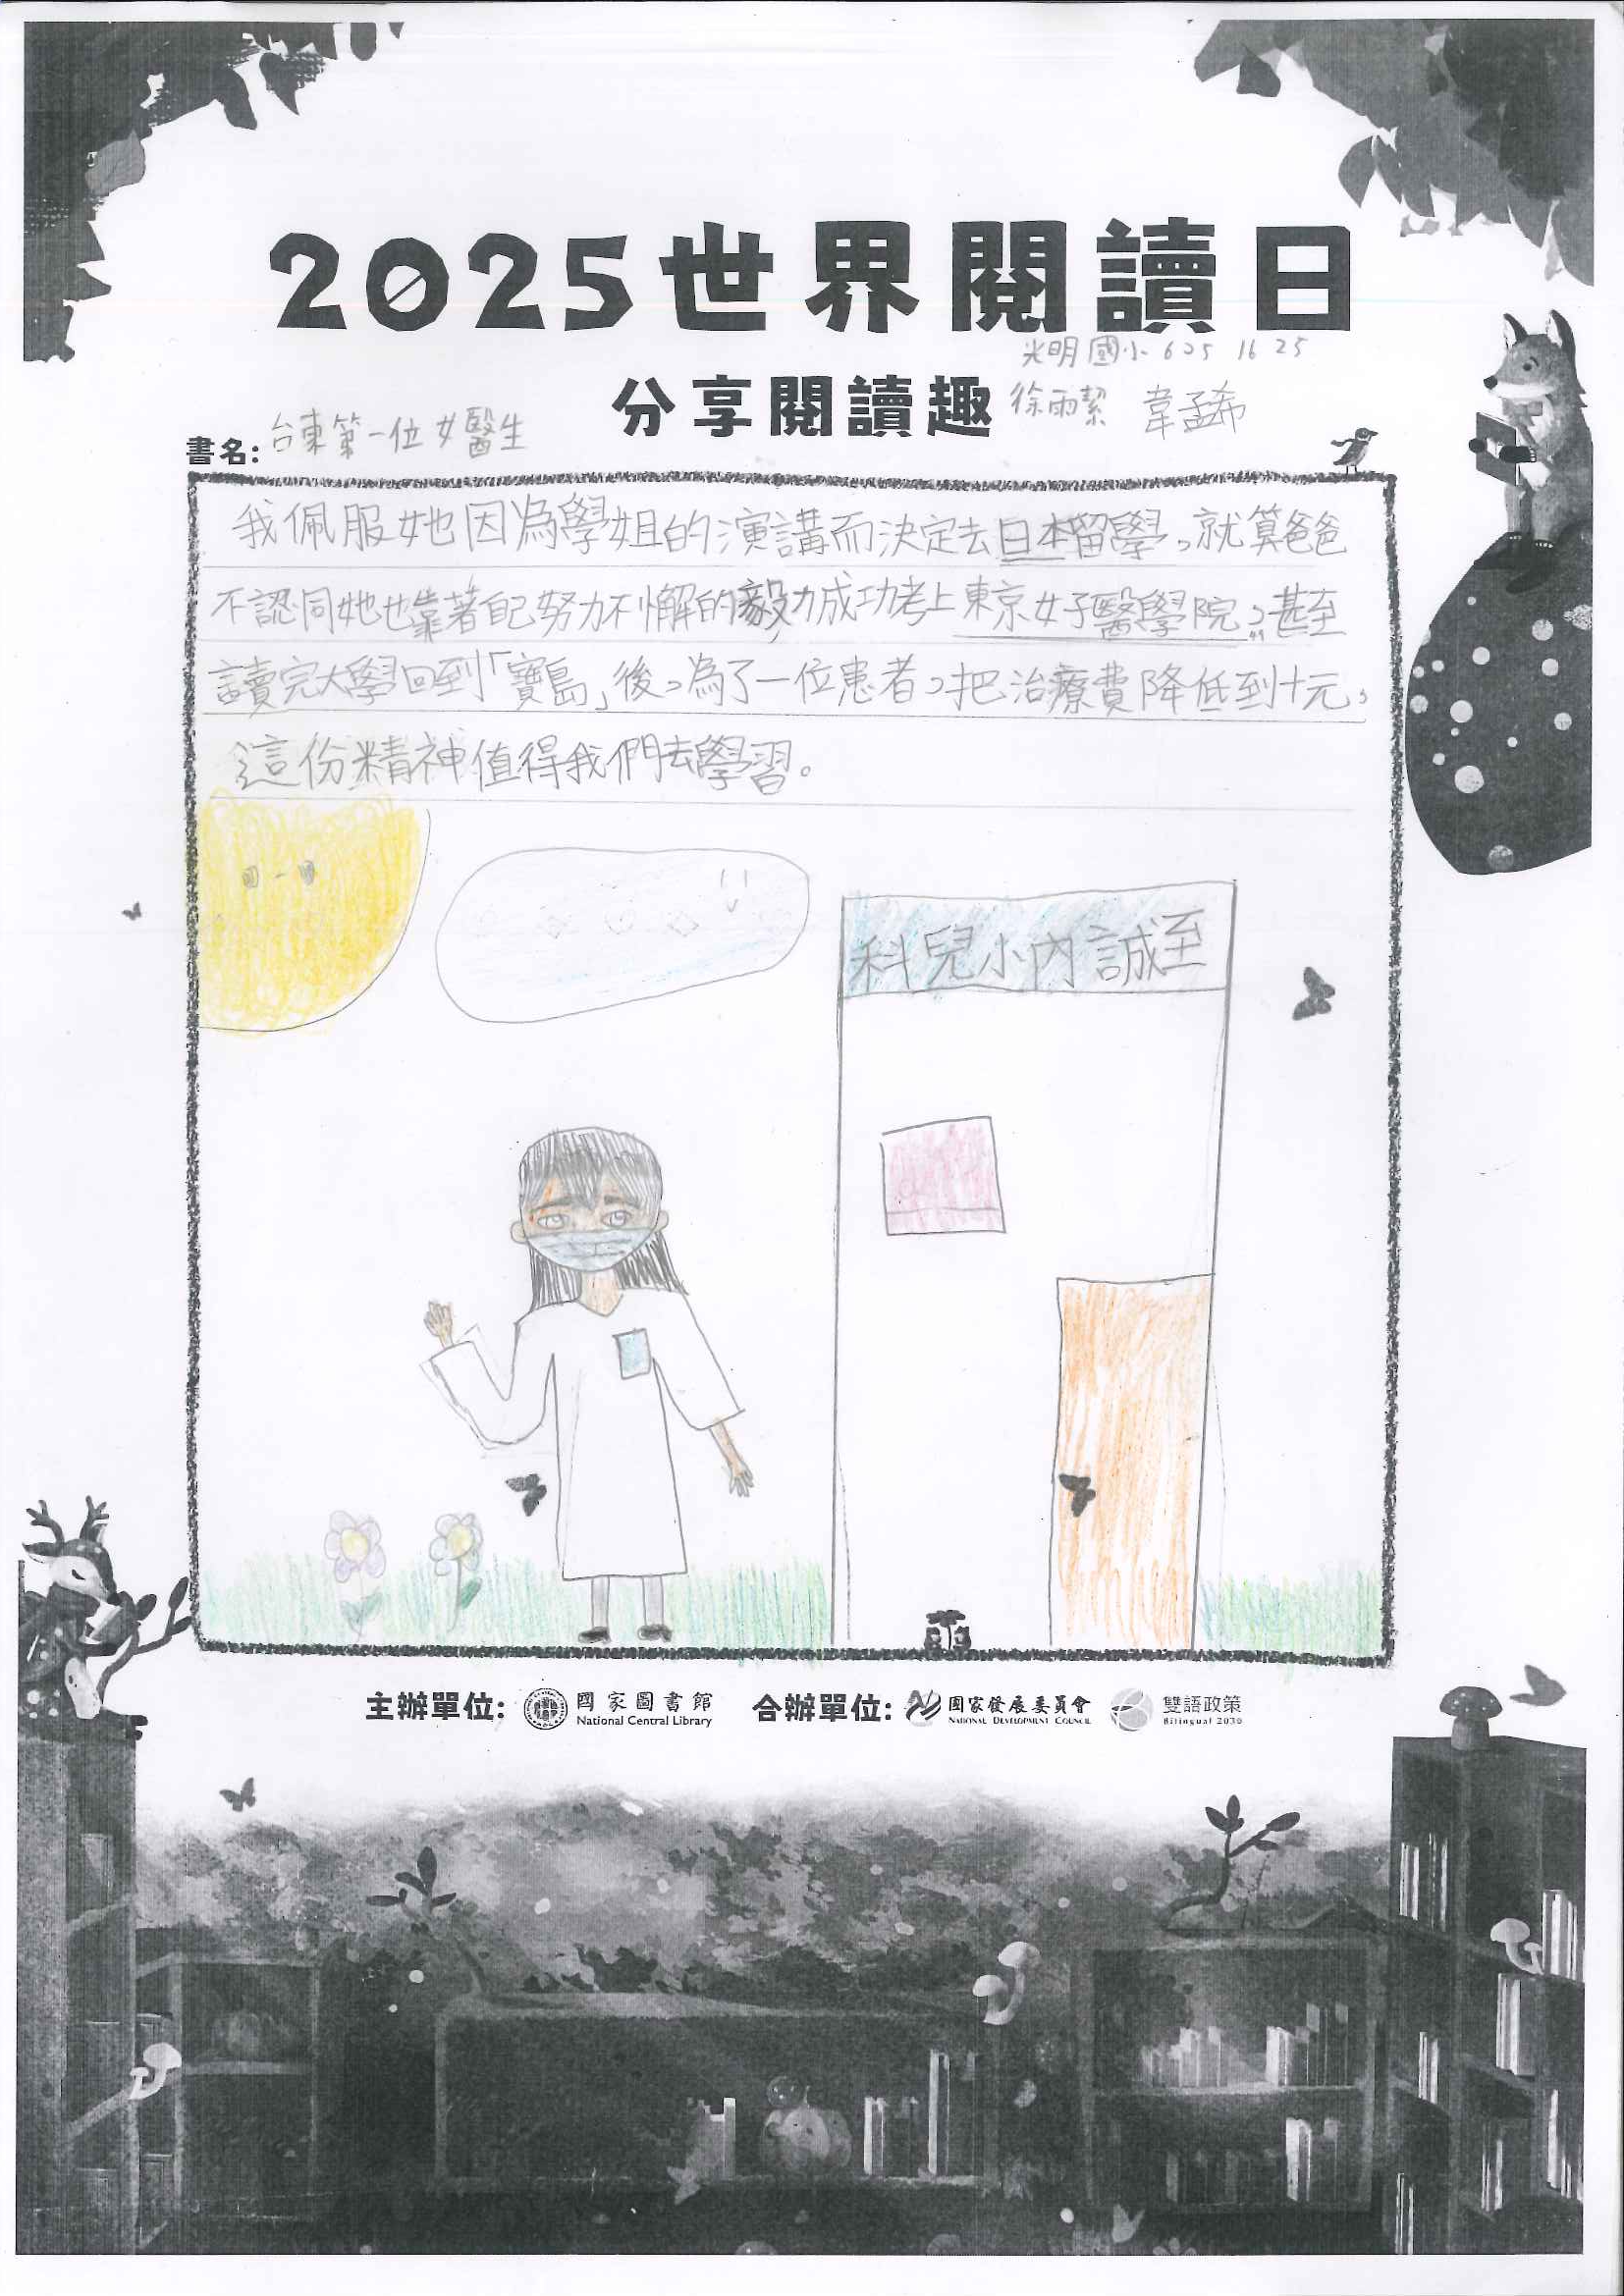 2025世界閱讀日
光明國小 625 16 25
分享閱讀趣 徐雨絜 韋孟希
書名: 台東第一位女醫生
我佩服她因為學姐的演講而決定去日本留學,就算爸爸
不認同她也靠著自己努力不懈的毅力成功考上東京女子醫學院,甚至
讀完大學回到「寶島」後,為了一位患者,把治療費降低到十元,
這份精神值得我們去學習。
科兒小內誠至
主辦單位: 國家圖書館 National Central Library 合辦單位: 國家發展委員會 NATIONAL DEVELOPMENT COUNCIL 雙語政策 Bilingual 2030